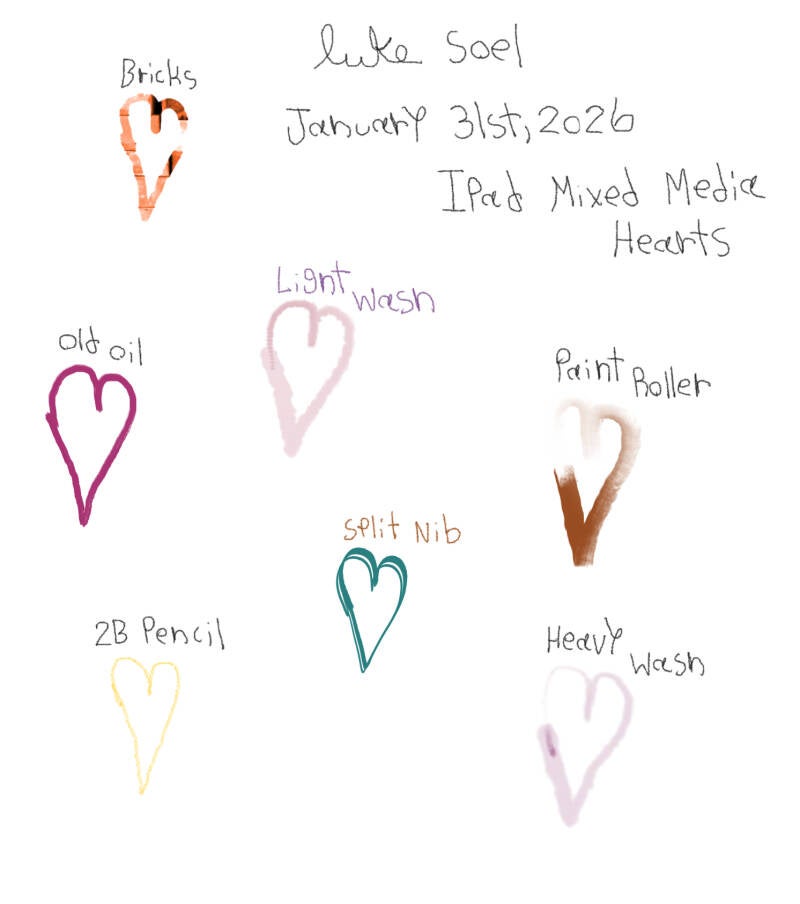 Luke Soel
Bricks
January 31st, 2026
IPad Mixed Media
Hearts
Light
Wash
Old Oil
Paint
Roller
Split Nib
2B Pencil
Heavy
Wash